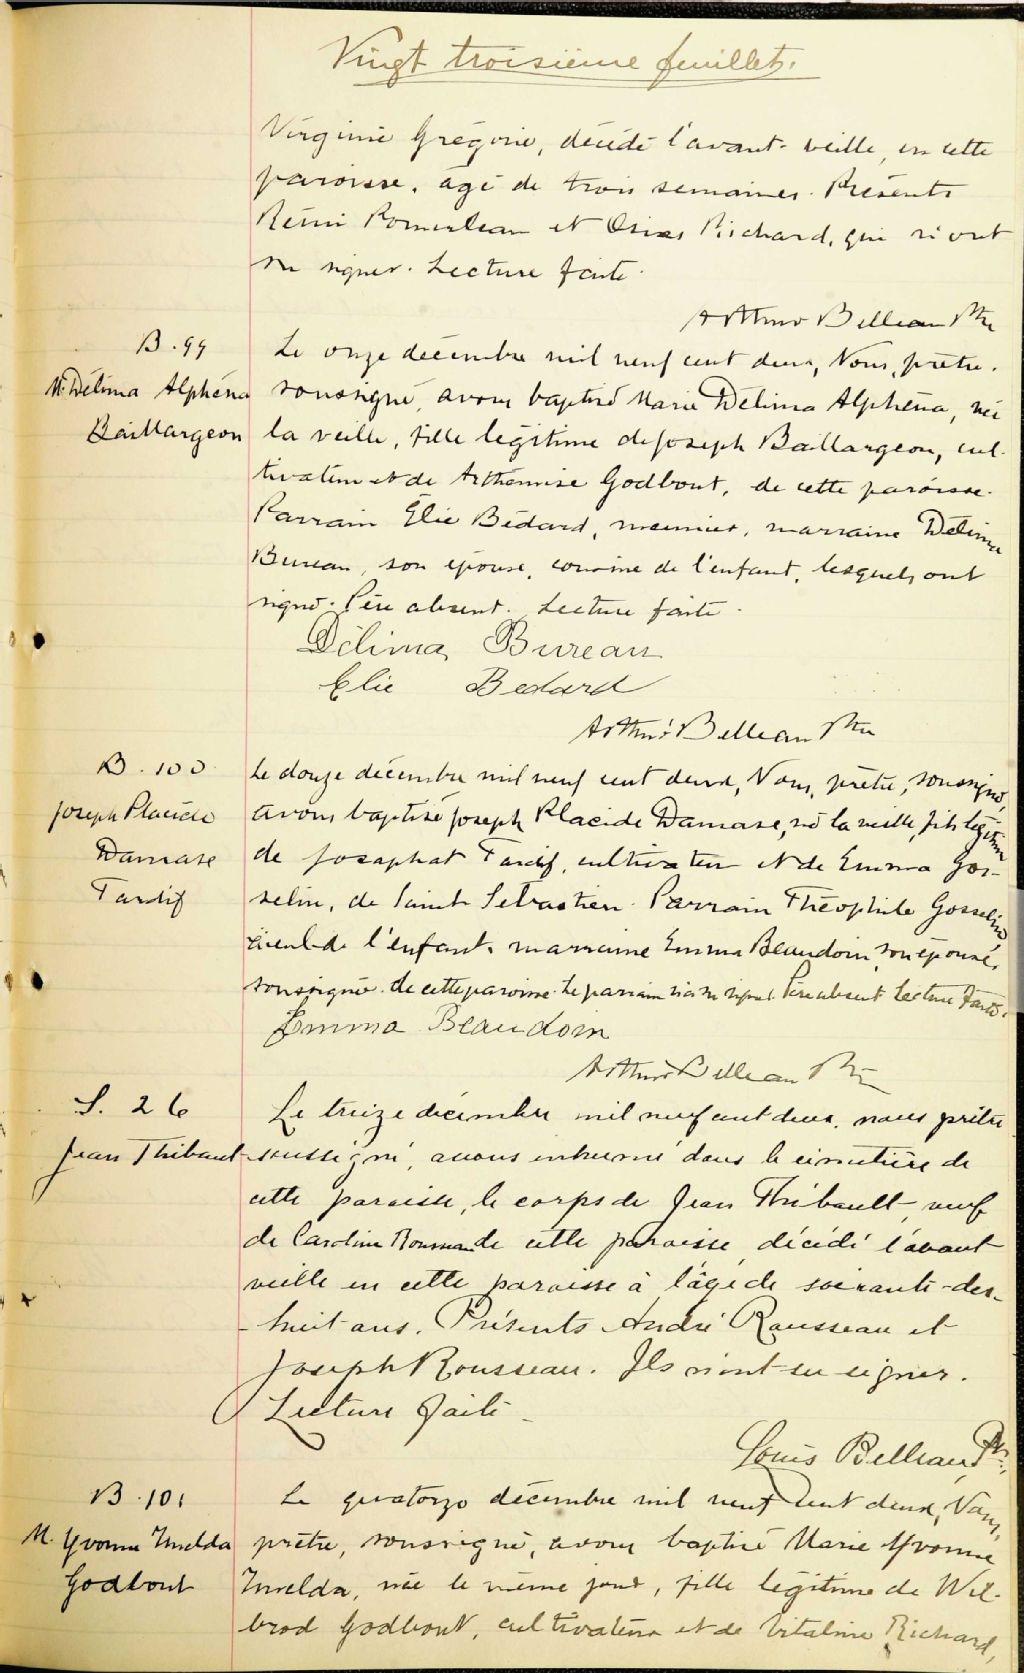 Vingt troisième feuillet.
Virginie Grégoire, décédé l'avant-veille, en cette
paroisse, âgé de trois semaines. Présents
Rémi Pomerleau et Osias Richard, qui n'ont
su signer. Lecture faite.
Arthur Belleau Ptre
B. 99
M. Délima Alphéna
Baillargeon
Le onze décembre mil neuf cent deux, Nous, prêtre.
soussigné, avons baptisé Marie Délima Alphéna, née
la veille, fille légitime de Joseph Baillargeon, cul-
tivateur et de Arthémise Godbout, de cette paroisse.
Parrain Élie Bédard, meunier, marraine Délima
Bureau, son épouse, cousine de l'enfant, lesquels ont
signé. Père absent. Lecture faite.
Délima Bureau
Elie Bedard
Arthur Belleau Ptre
B. 100
Joseph Placide
Damase
Tardif
Le douze décembre mil neuf cent deux, Nous, prêtre, soussigné,
avons baptisé Joseph Placide Damase, né la veille, fils légitime
de Josaphat Tardif, cultivateur et de Emma Gos-
selin, de Saint Sébastien. Parrain Théophile Gosselin,
aïeul de l'enfant, marraine Emma Beaudoin, son épouse,
soussignée de cette paroisse. Le parrain n'a su signer. Père absent. Lecture faite.
Emma Beaudoin
Arthur Belleau Ptre
S. 26
Jean Thibault
Le treize décembre mil neuf cent deux, nous prêtre
soussigné, avons inhumé dans le cimetière de
cette paroisse, le corps de Jean Thibault, veuf
de Caroline de cette paroisse décédé l'avant
veille en cette paroisse à l'âge de soixante-dix-
-huit ans. Présents André Rousseau et
Joseph Rousseau. Ils n'ont su signer.
Lecture faite
Louis Belleau Ptre
B. 101
M. Yvonne Imelda
Godbout
Le quatorze décembre mil neuf cent deux, Nous,
prêtre, soussigné, avons baptisé Marie Yvonne
Imelda, née le même jour, fille légitime de Wil-
brod Godbout, cultivateur et de Vitaline Richard,